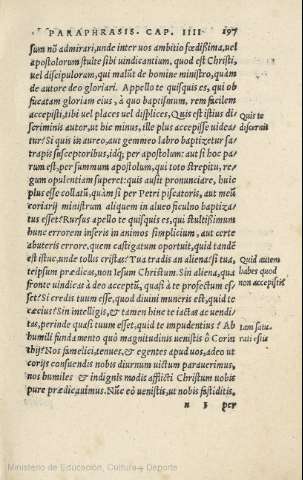 PARAPHRASIS. CAP. IIII 197
sum nõ admirari, unde inter uos ambitio fœdissima, uel
apostolorum stulte sibi uindicantium, quod est Christi,
uel discipulorum, qui malũt de homine ministro, quàm
de autore deo gloriari. Appello te quisquis es, qui ob
fucatam gloriam eius, à quo baptismum, rem facilem
accepisti, tibi uel places uel displices, Quis est istius di
scriminis autor, ut hic minus, ille plus accepisse uidea
tur? Si quis in aureo, aut gemmeo labro baptizetur sa
trapis susceptoribus, idq; per apostolum: aut si hoc pa
rum est, per summum apostolum, qui toto strepitu, re
gum opulentiam superet: quis ausit pronunciare, huic
plus esse collatũ, quàm si per Petri piscatoris, aut meũ
coriarij ministrum aliquem in alueo ficulno baptiza
tus esset? Rursus apello te quisquis es, qui stultissimum
hunc errorem inseris in animos simplicium, aut certe
abuteris errore, quem castigatum oportuit, quid tandẽ
est istuc, unde tollis cristas? Tua tradis an aliena? si tua,
teipsum prædicas, non Iesum Christum. Sin aliena, qua
fronte uindicas à deo acceptũ, quasi à te profectum es
set? Si credis tuum esse, quod diuini muneris est, quid te
cæcius? Sin intelligis, & tamen hinc te iactas ac uendi
tas, perinde quasi tuum esset, quid te impudentius? Ab
humili fundamento quò magnitudinis uenistis ô Corin
thij? Nos famelici, tenues, & egentes apud uos, adeo ut
corijs consuendis nobis diurnum uictum parauerimus,
nos humiles & indignis modis afflicti Christum uobis
pure prædicauimus. Nũc eò uenistis, ut nobis fastiditis,
n 3 per
Quis te
discernit
Quid autem
habes quod
non accepisti
Iam satu
rati estis
Ministerio de Educación, Cultura y Deporte